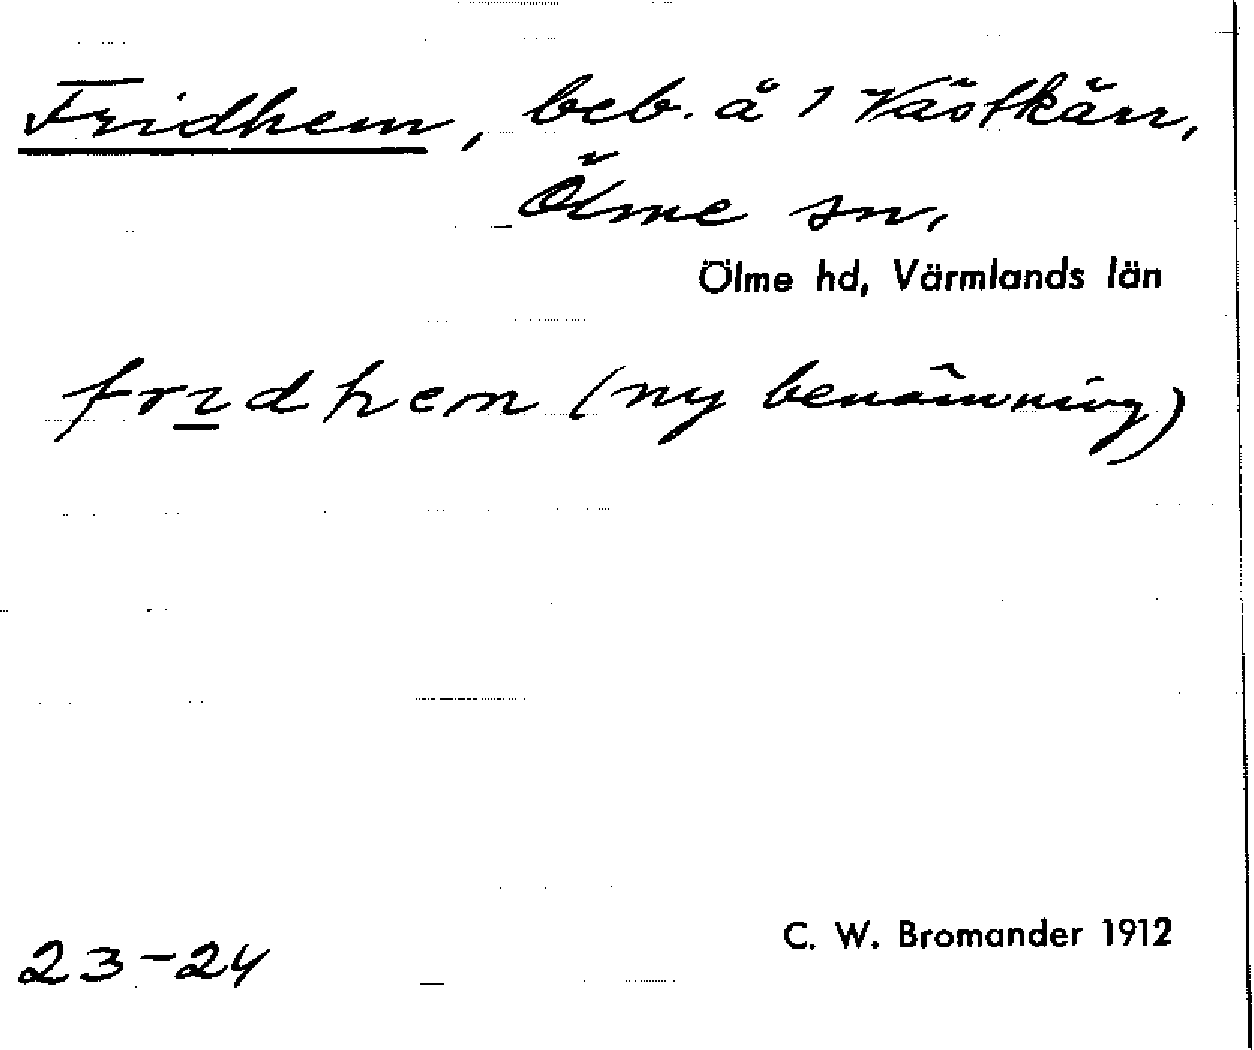 Fridhem, beb. å 1 Västkärr,
Ölme sn,
Ölme hd, Värmlands län
fridhem (ny benämning)
C. W. Bromander 1912
23-24